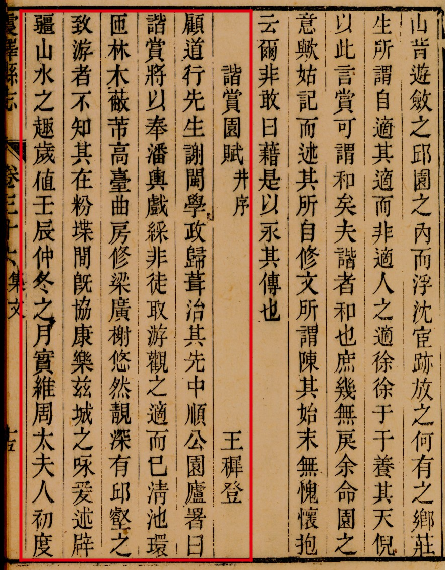 山昔遊斂之邱園之內而浮沈宦跡放之何有之鄉莊
生所謂自適其適而非適人之適徐徐于于養其天倪
以此言賞可謂和矣夫諧者和也庶幾無戾余命園之
意歟姑記而述其所自修文所謂陳其始末無愧懷抱
云爾非敢曰藉是以永其傳也
諧賞園賦 并序 王穉登
顧道行先生謝閩學政歸葺治其先中順公園廬署曰
諧賞將以奉潘輿戲綵非徒取游觀之適而已清池環
匝林木蔽芾高臺曲房修梁廣榭悠然靚深有邱壑之
致游者不知其在粉堞間旣協康樂茲城之咏爰述辟
疆山水之趣歲値壬辰仲冬之月實維周太夫人初度
縣志 卷三十六 集文